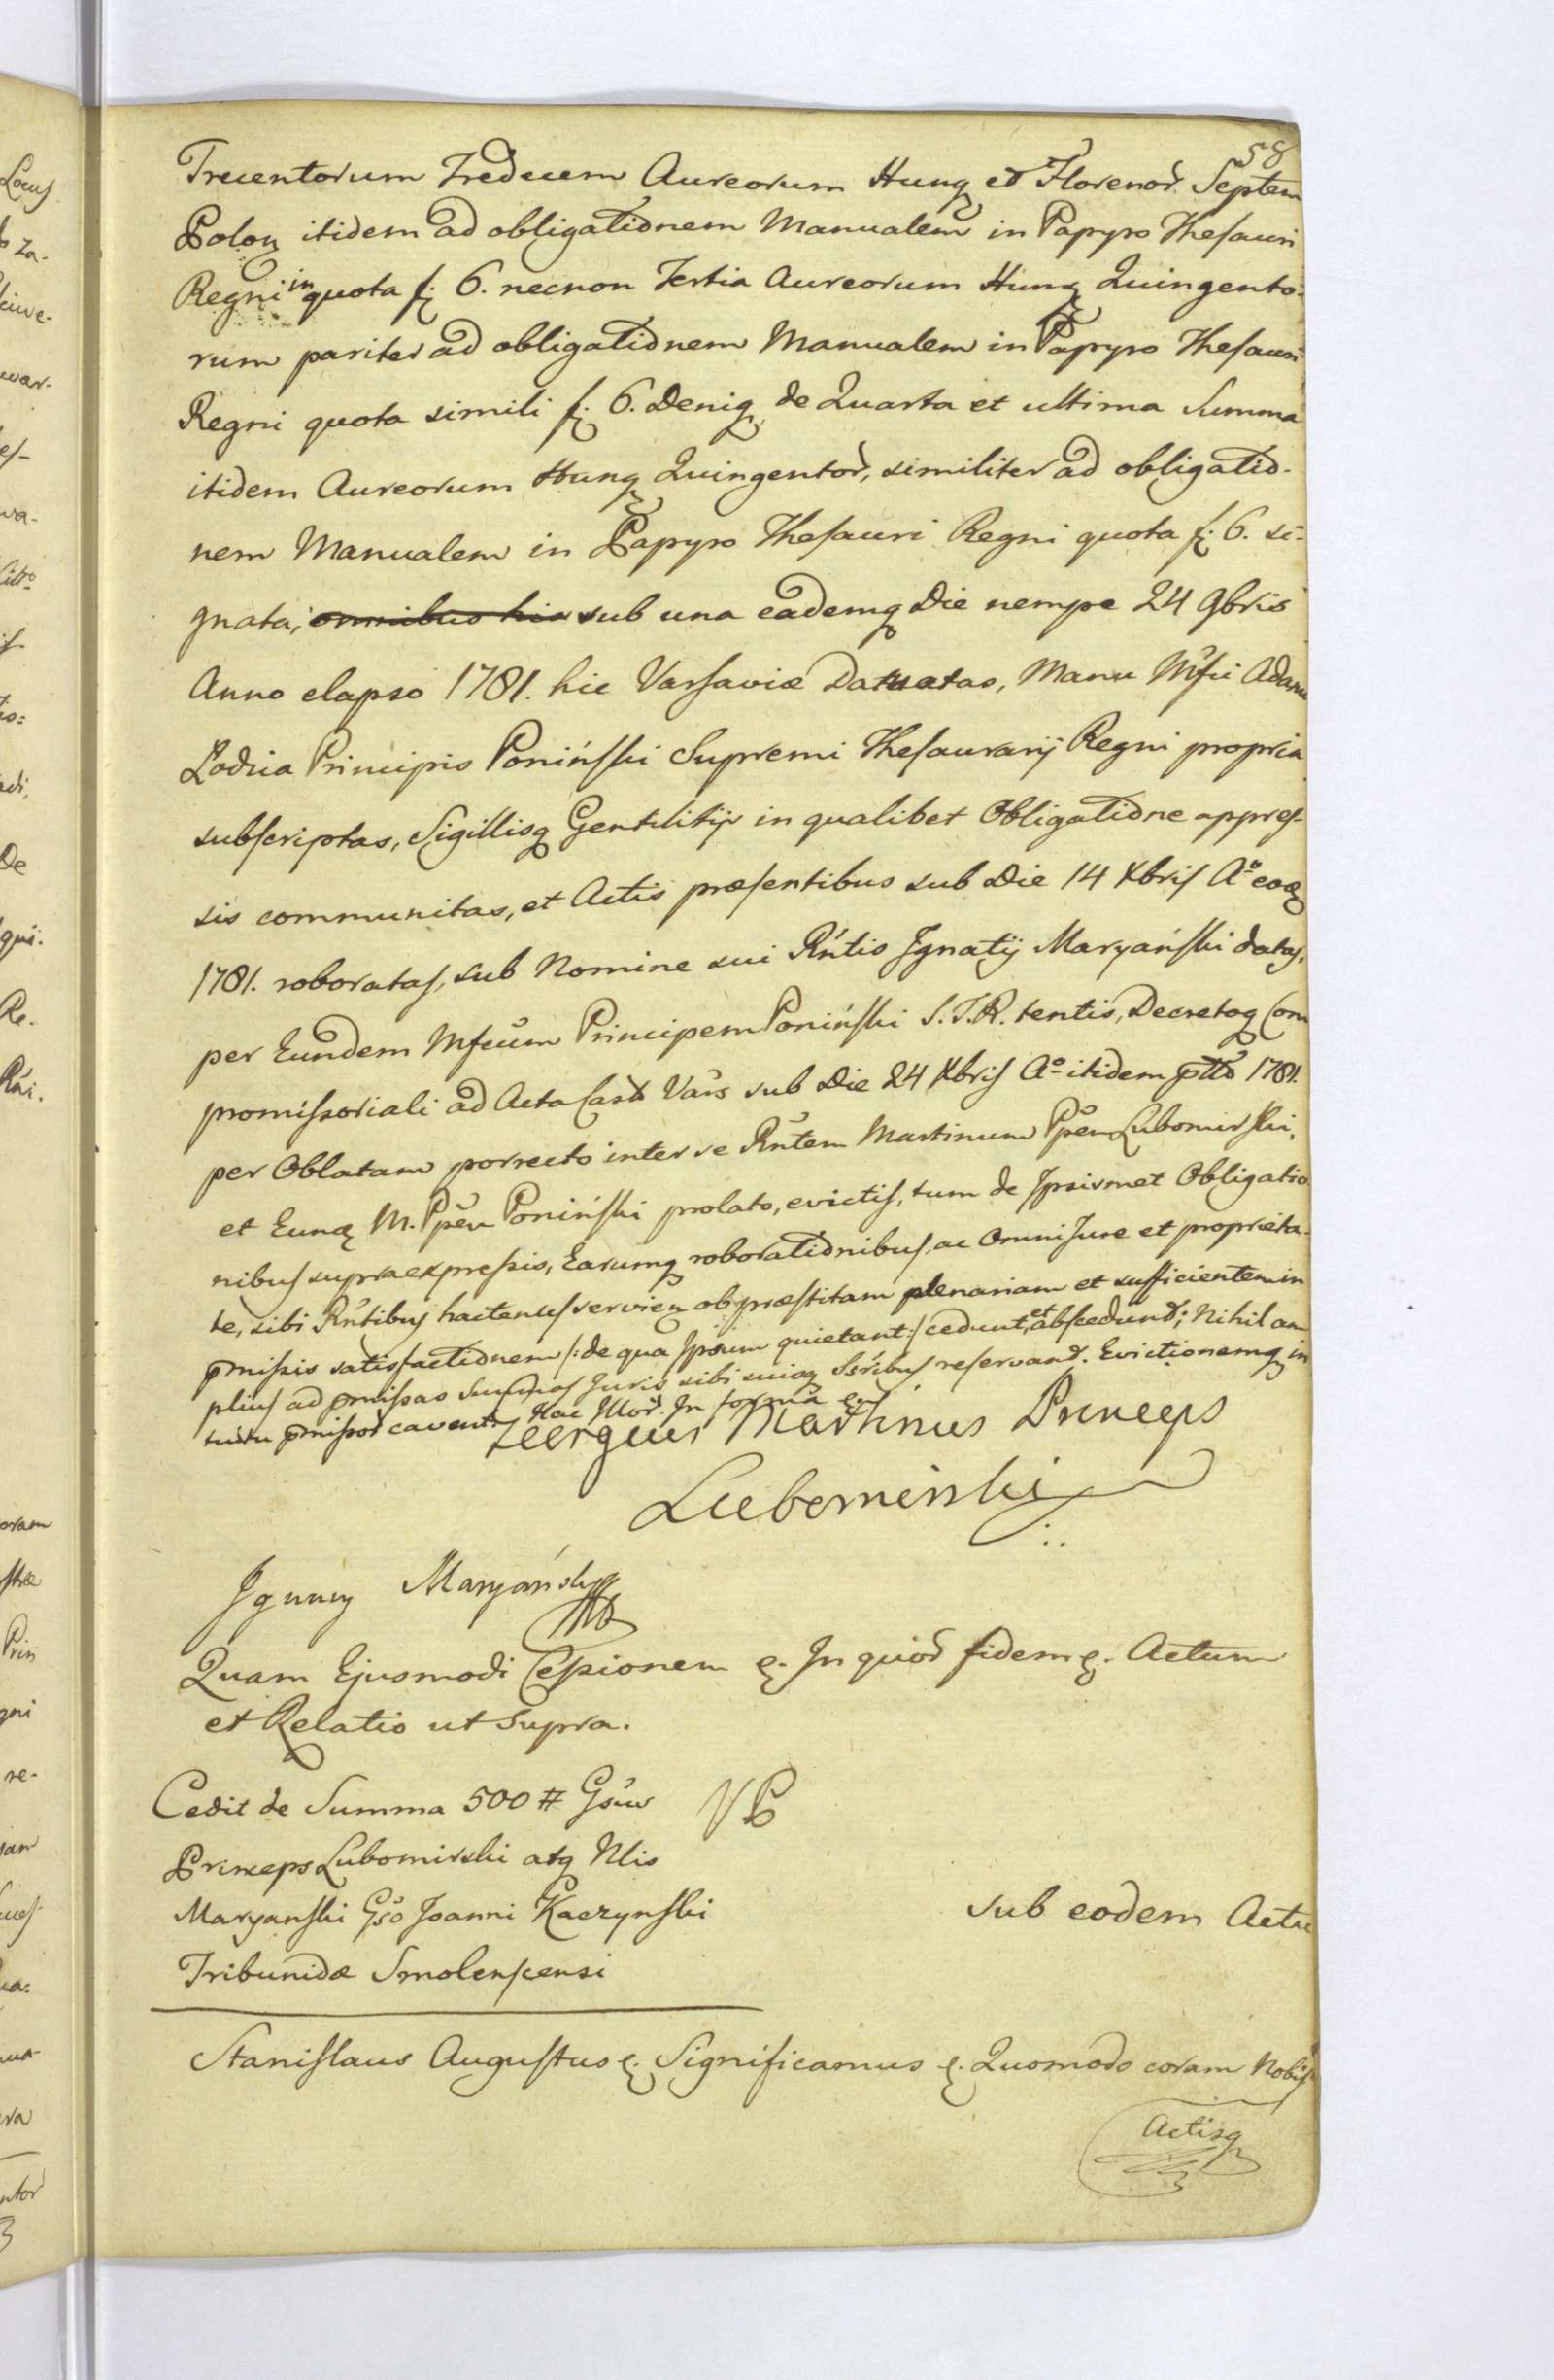 58
Trecentorum Tredecem Aureorum Hungq et Florenor. Septem
Polonq itidem ad obligationem Manualem in Papyro Thesauri
Regni in quota f. 6. necnon Tertia Aureorum Hungq Quingento-
rum pariter ad obligationem Manualem in Papyro Thesauri
Regni quota simili f. 6. Deniq de Quarta et ultima Summa
itidem Aureorum Hungq Quingentor, similiter ad obligatio-
nem Manualem in Papyro Thesauri Regni quota f. 6. si-
gnata, omnibus his sub una eademq Die nempe 24 9bris
Anno elapso 1781. hic Varsaviæ Datuatas, Manu Mfci Adami
Lodzia Principis Poniński Supremi Thesaurarij Regni propria
subscriptas, Sigillisq Gentilitijs in qualibet Obligatione appres-
sis communitas, et Actis præsentibus sub Die 14 Xbris Aº eoq
1781. roboratas, sub Nomine sui Rntis Ignatij Maryański datas,
per Eundem Mfcum Principem Poniński S. T. R. tentis, Decretoq Com
promissoriali ad Acta Castr Vars sub Die 24 Xbris Aº itidem ptto 1781.
per Oblatam porrecto inter se Rntem Martinum Ppem Lubomirski,
et Eunq M. Ppem Poniński prolato, evictis, tum de Ipsismet Obligatio
nibus supraexpressis, Earumq roborationibus, ac Omni Jure et proprieta-
te, sibi Rntibus hactenus servien ob præstitam plenariam et sufficientem in
pmissis satisfactionem /: de qua Ipsum quietant :/ cedunt, et abscedunt; Nihil am
plius ad pmissas Summas Juris sibi suisq Ssribus reservand. Evictionemq in
tuitu pmissor cavent. Hac Mor. In forma e.
Jeergius Martinus Princeps
Lubomirski
Ignacy Maryański
Quam Ejusmodi Cessionem e. In quior fidem e. Actum
et Relatio ut supra.
Cedit de Summa 500 # Gsus
Princeps Lubomirski atq Nlis
Maryanski Gso Joanni Kaczynski
Tribunidæ Smolenscensi
sub eodem Actu
Stanislaus Augustus e. Significamus e. Quomodo coram Nobis
Actisq